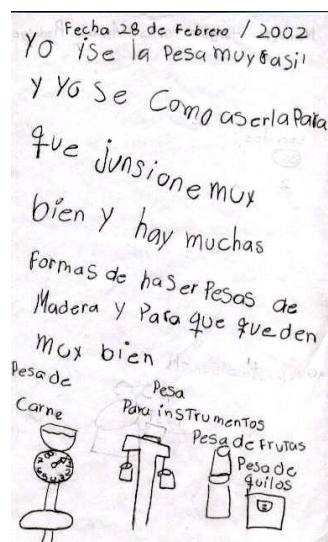 Fecha 28 de Febrero / 2002
Yo ise la Pesa muy fasil
y Yo se como aserla Para
que junsione mux
bien y hay muchas
formas de haser Pesas de
Madera y Para que queden
mux bien
Pesa de
Carne
Pesa
Para insTrumentos
Pesa de FruTas
Pesa de
quilos